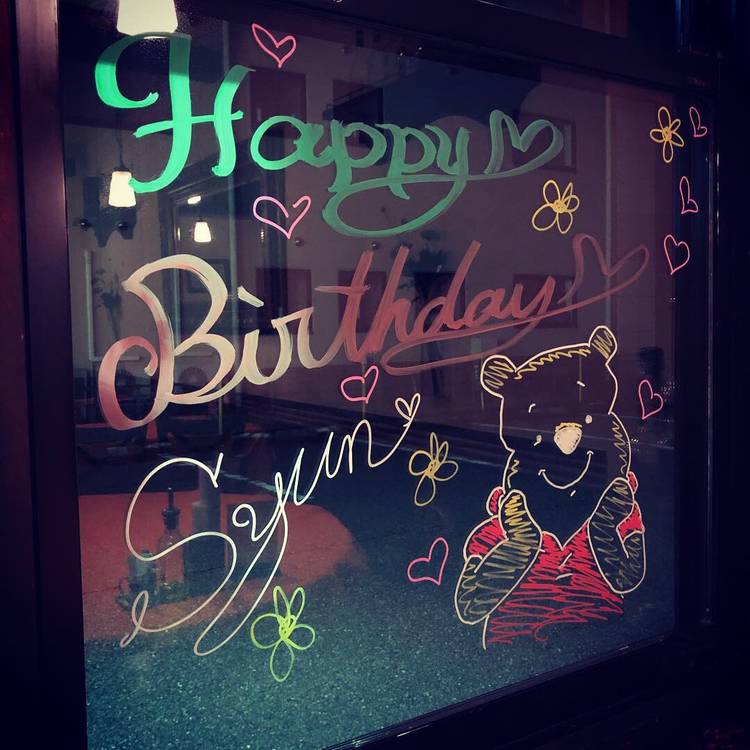 Happy
Birthday
Syun